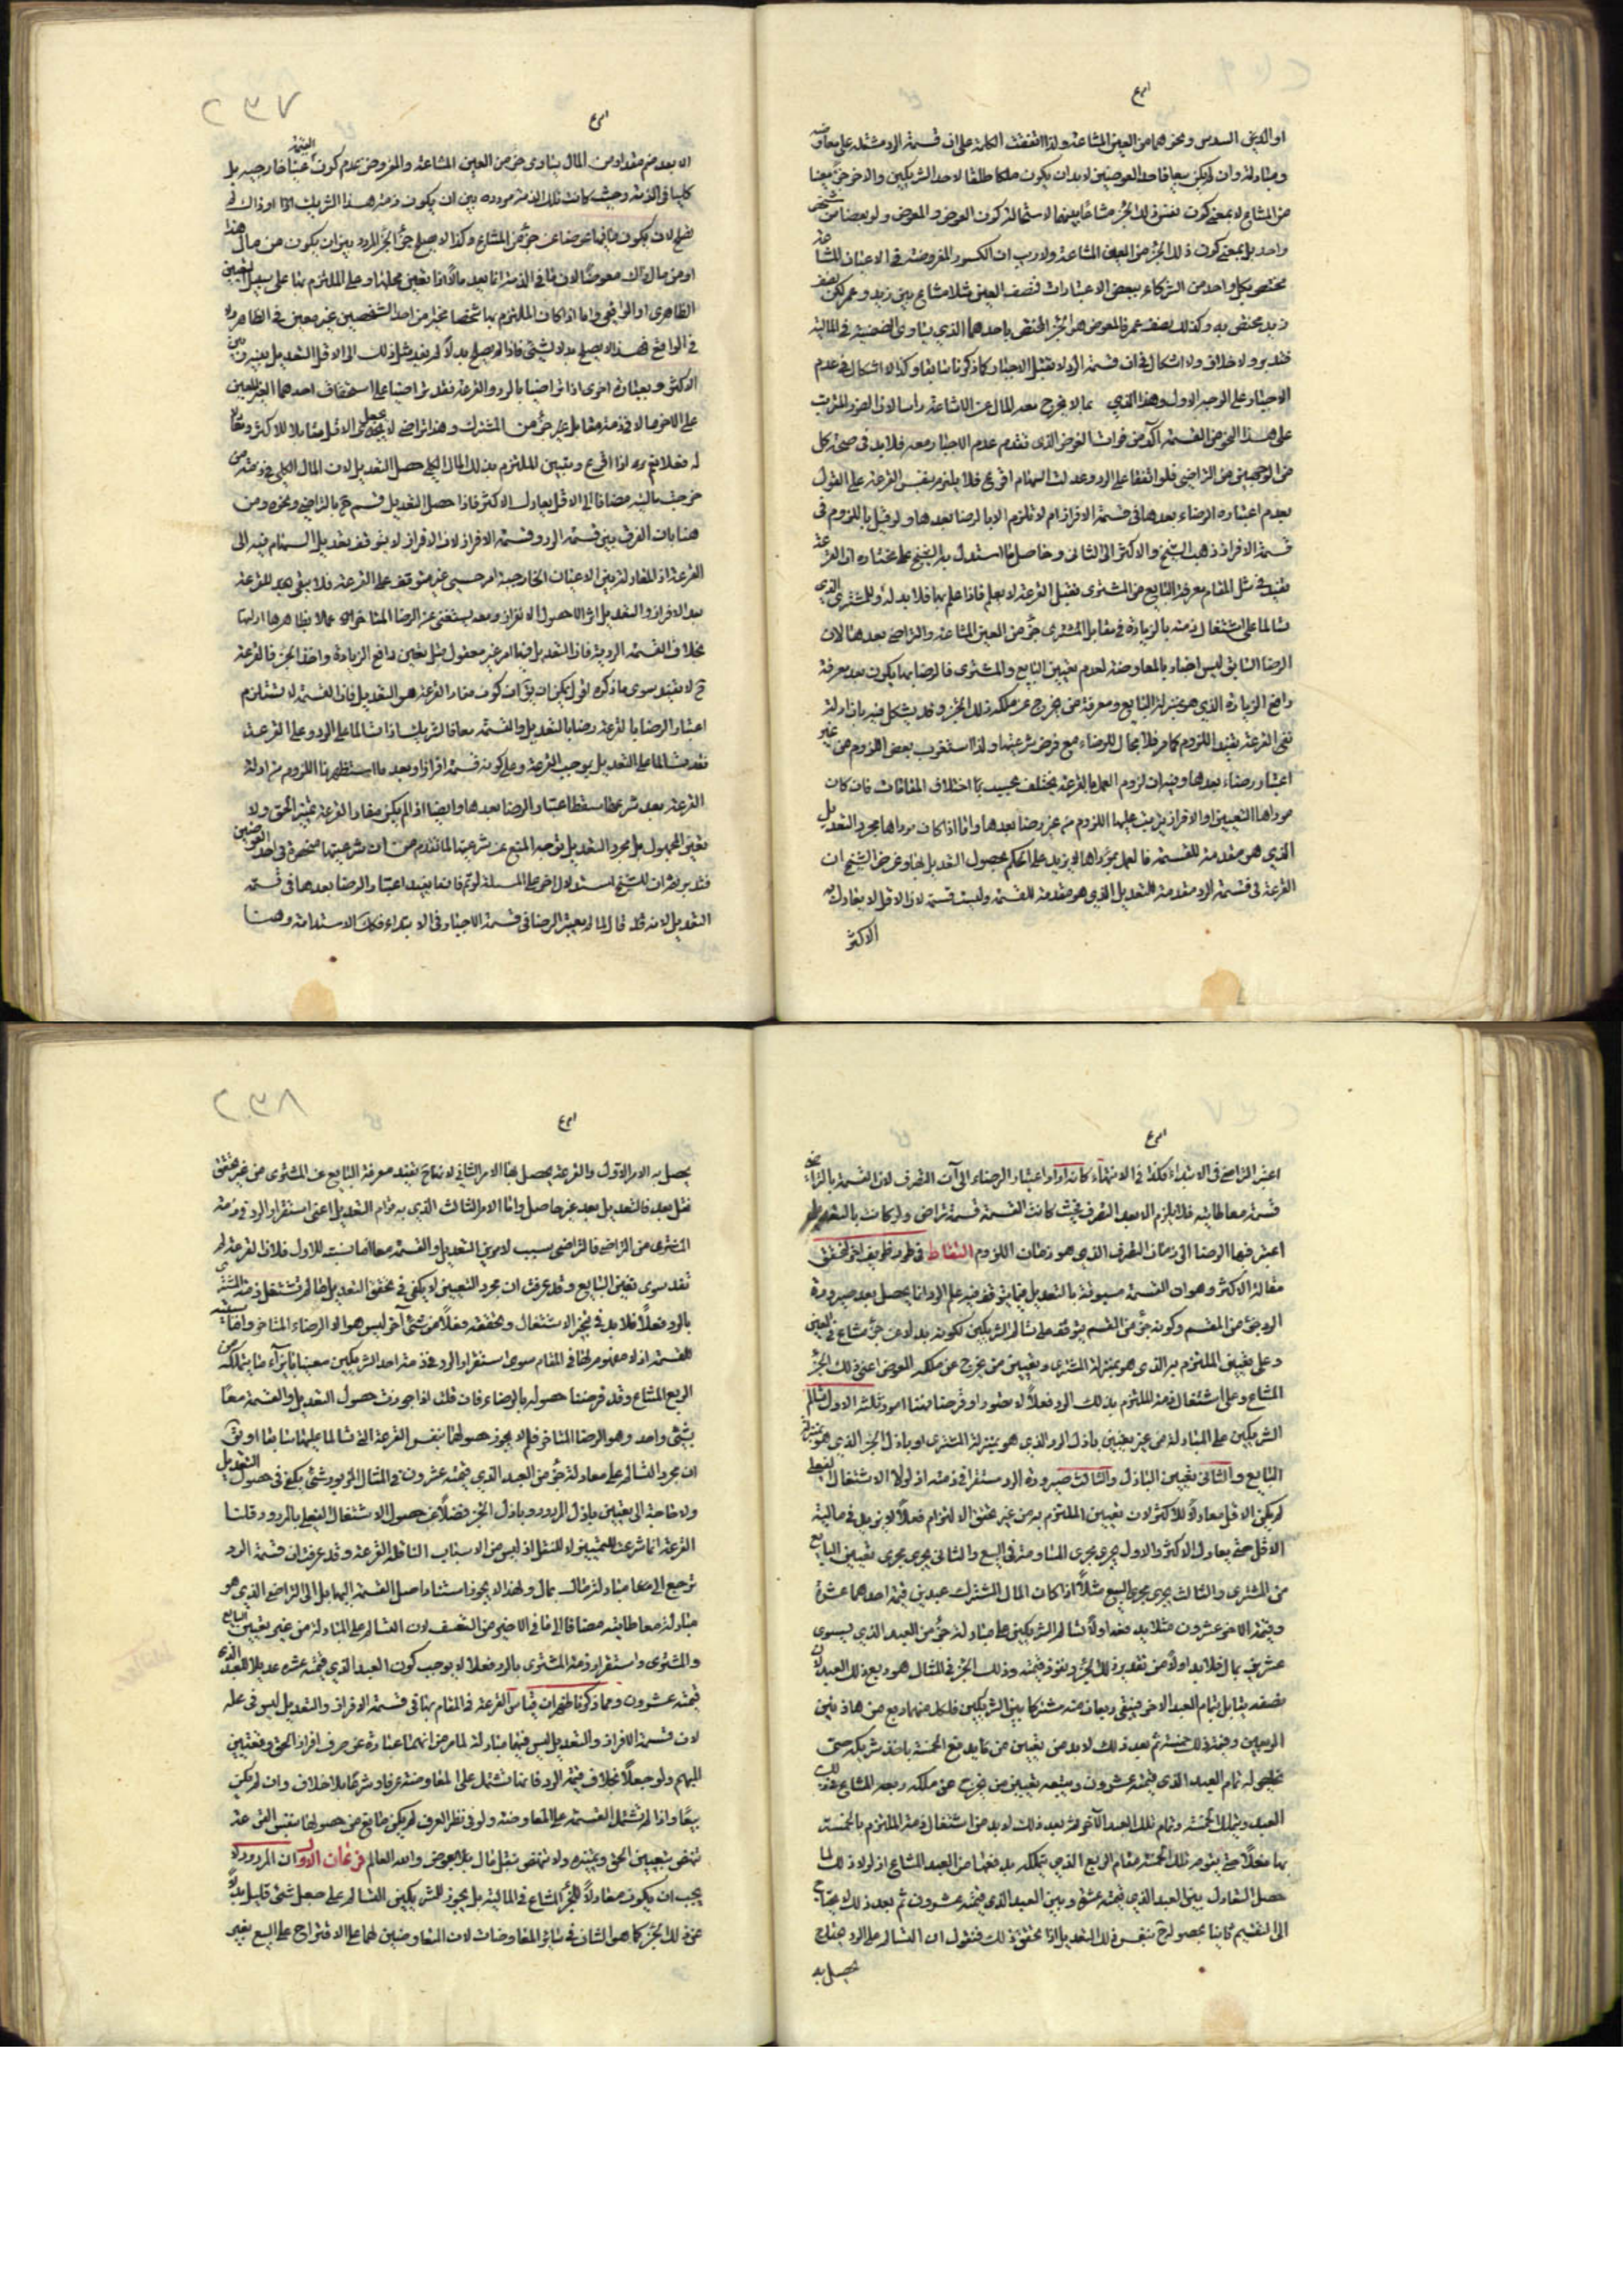 او الدين السدس ونحوهما من العين المشاعة ولذا اتفقت الكلمة على ان قسمة الرد مشتملة على معاوضة
ومبادلة وان لم يكن بيعا فاحد العوضين لابد ان يكون ملكا طلقا لاحد الشريكين والاخر جزء معينا
من المشاع لا بمعنى كون نفس ذلك الجزء مشاعا بينهما لاستحالة كون العوض والمعوض ولو بعضا من شخص
واحد بل بمعنى كون ذلك الجزء من العين المشاعة ولا ريب ان الكسور المفروضة في الاعيان المشاعة
مختص بكل واحد من الشركاء ببعض الاعتبارات فنصف العين مثلا مشاع بين زيد وعمر لكن نصف
زيد مختص به وكذلك نصف عمر فالمعوض هو الجزء المختص باحدهما الذي يساوى الضميمة في المالية
فتدبر ولا خلاف ولا اشكال في ان قسمة الرد لا تقبل الاجبار كما ذكرنا سابقا وكذا لا اشكال في عدم
الاجبار على الوجه الاول وهذا الذي مما لا يخرج معه المال عن الاشاعة راسا لان الضرر المترتب
على هذا النحو من القسمة آكد من فوات الغرض الذى تقدم عدم الاجبار معه فلا بد في صحة كل
من الوجهين من التراضي فلو اتفقا على الرد وعدلت السهام اقرع فلا يلزم بنفس القرعة على القول
بعدم اعتبار الرضاء بعدها في قسمة الافراز ام لا تلزم الا بالرضا بعدها ولو قيل باللزوم في
قسمة الافراز ذهب الشيخ والاكثر الى الثانى وحاصل ما استدل به الشيخ على مختاره ان القرعة
تفيد في مثل المقام معرفة البايع من المشترى فقبل القرعة لا يعلم فاذا علم بها فلا بد له وللمشترى الذى
تسالما على اشتغال ذمته بالزيادة في مقابل المشترى جزء من العين المشاعة والتراضى بعد هنا لان
الرضا السابق ليس اعتبار بالمعاوضة لعدم تعيين البايع والمشترى فالرضا بها يكون بعد معرفة
دافع الزيادة الذي هو بمنزلة البايع ومعرفة من يخرج عن ملكه ذلك الجزء وقد يشكل فيه بان ادلة
نفى القرعة تفيد اللزوم كما مر فلا مجال للرضاء مع فرض شرعيتها ولذا استقرب بعض اللزوم من غير
اعتبار رضاء بعدها وفيه ان لزوم العمل بالقرعة يختلف بحسب اختلاف المقامات فان كان
موردها التعيين او الافراز يترتب عليها اللزوم من غير رضا بعدها واما اذا كان موردها مجرد التعديل
الذي هو مقدمة للقسمة فالعمل بمؤداها لا يزيد على الحكم بحصول التعديل بها وغرض الشيخ ان
القرعة في قسمة الرد مقدمة للتعديل الذي هو مقدمة للقسمة وليست قسمة لان الاقل لا يعادل
الاكثر
٢٣٧
الا بعد ضم مقدار من المال يساوى جزء من العين المشاعة والمفروض عدم كون الضميمة عينا خارجية بل
كليا في الذمة وحيث كانت تلك الذمة مرددة بين ان يكون ذمة هذا الشريك او ذاك فلا
يصلح لان يكون ما فيها عوضا عن جزء من المشاع وكذا لا يصلح جزء الجزء المردد بين ان يكون من مال هذا
او من مال ذاك معوضا لان ما في الذمة انما يعد مالا اذا تعين محلها وعلى الملتزم بها على سبيل التعيين
الظاهرى او الواقعى واما اذا كان الملتزم بها شخصا مخيرا من احد الشخصين غير معين في الظاهر ولا
في الواقع فهذا لا يصلح بدلا لشئ فاذا لم يصلح بدلا لم يفد مثل ذلك الى الاقل التعديل بينه وبين
الاكثر وبعبارة اخرى اذا تراضيا بالرد والقرعة فقد تراضيا على استحقاق احدهما الغير المعين
على الاخر مالا في ذمته مقابل غير جزء من المشترك وهذا تراضى لا يجعل الاقل مقابلا للاكثر
له فعلا نعم اذا اقرع وتبين الملتزم بذلك المال الكلى حصل التعديل لان المال الكلى في ذمة
من حيث ماليته مضافا الى الاقل يعادل الاكثر فاذا حصل التعديل قسم ح بالتراضى ونحوه ومن
هنا بان الفرق بين قسمة الرد وقسمة الافراز لان الافراز لا يتوقف تعديل السهام فيه الى
القرعة اذ المعادلة بين الاعيان الخارجية امر حسى غير متوقف على القرعة فلا يبقى بعد القرعة
بعد الافراز والتعديل اثر الا حصول الافراز وبعده يستغنى عن الرضا المتاخر عملا بظاهر ادلتها
بخلاف القسمة الردية فاذا التعديل فيها امر غير معقول قبل تعيين دافع الزيادة واخذ الجزء فالقرعة
ح لا تفيد سوى ما ذكره اقول يمكن ان يق ان كون مفاد القرعة هو التعديل فان القسمة لا تستلزم
اعتبار الرضا بالقرعة رضا بالتعديل والقسمة معا فالشريك اذا تسالما على الرد وعلى القرعة
فقد تسالما على التعديل بوجب القرعة وعلى كونه قسمة افرازا وبعد ما استظهرنا اللزوم من ادلة
القرعة بعد شرعيتها سقط اعتبار الرضا بعدها وايضا اذا لم يكن مفاد القرعة تمييز الحق ولا
تعيين المجهول بل مجرد التعديل توجه المنع عن شرعيتها لما تقدم من ان شرعيتها منحصرة في احد العوضين
فتدبر نعم ان للشيخ استدلال اخر على المسئلة لو تم فانما يفيد اعتبار الرضا بعدها في قسمة
التعديل لانه قد قال لما لم يعتبر الرضا في قسمة الاجبار في الابتداء فكذا الاستدامة وهنا
اعتبر التراضى في الابتداء فكذا في الانتهاء كانه اراد اعتبار الرضاء الى آن التصرف لان القسمة بالتراضى
قسمة معاطاتية فلا يلزم الا بعد التصرف بحيث كانت القسمة قسمة تراض ولو كانت بالتعديل
اعتبر فيها الرضا الى زمان التصرف الذي هو زمان اللزوم التقاط في طرد طريف اخر لتحقق
مقالة الاكثر وهو ان القسمة مسبوقة بالتعديل فيما يتوقف فيه على الرد انما يحصل بعد صيرورة
الرد جزء من المقسم وكونه جزء من القسم يتوقف على تسالم الشريكين لكونه بدلا عن جزء مشاع في العين
وعلى تعيين الملتزم به الذى هو بمنزلة المشترى وتعيين من يخرج عن ملكه المعوض اعنى ذلك الجزء
المشاع وعلى اشتغال ذمة الملتزم بذلك الرد فعلا لا مقدرا وفرضا فهنا امور ثلثة الاول تسالم
الشريكين على المبادلة من غير تعيين باذل الرد الذي هو بمنزلة المشترى او باذل الجزء الذي هو بمنزلة
البايع والثانى تعيين الباذل والثالث صيرورة الرد مستقرا في ذمته اذ لولا الاشتغال الفعلى
لم يكن الاقل معادلا للاكثر لان تعيين الملتزم به من غير تحقق الالتزام فعلا لا يزيد في مالية
الاقل حتى يعادل الاكثر والاول يجرى مجرى المساومة في البيع والثانى يجرى مجرى تعيين البايع
من المشترى والثالث يجرى مجرى البيع مثلا اذا كان المال المشترك عبدين قيمة احدهما عشرة
وقيمة الاخر عشرون مثلا بعد اولا تسالم الشريكين على مبادلة جزء من العبد الذي يسوى
عشرين بمال فلا بد اولا من تقدير ذلك الجزء وتقويمه وذلك الجزء في المثال هو ربع ذلك العبد لان
نصفه يقابل تمام العبد الاخر فيبقى ربعان منه مشتركا بين الشريكين فلكل منهما ربع من هاذين
الربعين وقيمة ذلك خمسة ثم بعد ذلك لا بد من تعيين من يدفع الخمسة ياخذ شريكه حتى
يخلص له تمام العبد الذى قيمته عشرون ويتبعه تعيين من يخرج عن ملكه ربعه المشاع من ذلك
العبد ويملك الخمسة وتمام ذلك العبد الآخر ثم بعد ذلك لا بد من اشتغال ذمة الملتزم بالخمسة
بها فعلا حتى يقوم تلك الخمسة مقام الربع الذي يتملكه بدفعها من العبد المشاع اذ لولا ذلك لما
حصل التعادل بين العبد الذي قيمته عشرة وبين العبد الذي قيمته عشرون ثم بعد ذلك لا يحتاج
الى التقسيم ثانيا بحصوله ح بنفس ذلك التعديل اذا تحقق ذلك فنقول ان التسالم على الرد مثلا ح
يحصل به
٢٣٨
يحصل به الامر الاول والقرعة يحصل بها الامر الثانى لانها ح تفيد معرفة البايع عن المشترى من غير تحقق
نقل بعد فالتعديل بعد غير حاصل واما الامر الثالث الذي به قوام التعديل اعنى استقرار الرد في ذمة
المشترى من التراضى فالتراضى بسبب لامرين التعديل والقسمة معا اما نسبته للاول فلان القرعة لم
تفد سوى تعيين البايع وقد عرفت ان مجرد التعيين لا يكفى في تحقق التعديل ما لم تشتغل ذمة المشترى
بالرد فعلا فلا بد في تنجز الاشتغال وتحققه فعلا من شئ آخر ليس هو الا الرضاء المتاخر واما سببيته
للقسمة اذ لا مفهوم لها في المقام سوى استقرار الرد في ذمة احد الشريكين معينا بازاء ما يتملكه من
الربع المشاع وقد فرضنا حصوله بالرضاء فان قلت اذا جوزت حصول التعديل والقسمة معا
بشئ واحد وهو الرضا المتاخر فلم لا يجوز حصولهما بنفس القرعة التى تسالما عليها سابقا او يق
ان مجرد التسالم على معادلة جزء من العبد الذي قيمته عشرون في المثال المزبور بشئ يكفى في حصول التعديل
ولا حاجة الى تعيين باذل المردود وباذل الجزء فضلا عن حصول الاشتغال الفعلى بالمردود قلنا
القرعة انما شرعت للتعيين لا للنقل اذ ليس من الاسباب الناقلة القرعة وقد عرفت ان قسمة الرد
ترجع الى معاوضة مبادلة مال بمال ولهذا لا يجوز استناد اصل القسمة اليها بل الى التراضى الذي هو
مبادلة معاطاتية مضافا الى ما في الاخير من التعسف لان التسالم على المبادلة من غير تعيين البايع
والمشترى واستقرار ذمة المشترى بالرد فعلا لا يوجب كون العبد الذي قيمته عشرة عديلا للعبد الذى
قيمته عشرون ومما ذكرنا ظهر ان قياس القرعة في المقام بها في قسمة الافراز والتعديل ليس في محله
لان قسمة الافراز والتعديل ليس فيها مبادلة لما مر من انها عبارة عن صرف افراز الحق وتعيين
المبهم ولو جعلا بخلاف قسمة الرد فانها تشتمل على المعاوضة عرفا وشرعا بلا خلاف وان لم يكن
بيعا واذا لم تشتمل القسمة على المعاوضة ولو في نظر العرف لم يكن مانع من حصولها بنفس القرعة
تقتضى بتعيين الحق وتميزه ولا تقتضى بنقل مال بلا عوض والله العالم فرعان الاول ان المردود لا
يجب ان يكون معادلا للجزء المشاع في المالية بل يجوز للشريكين التسالم على جعل شئ قليل بدلا
عن ذلك الجزء كما هو الشان في سائر المعاوضات لان المتعاوضين لهما الاقتراح على البيع بغير